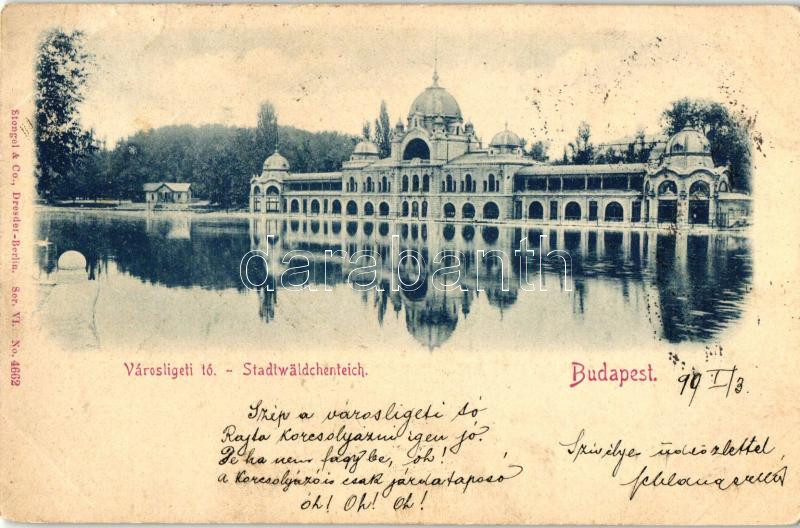 Stengel & Co., Dresden-Berlin. Ser. VI. No. 4662
darabanth
Városligeti tó. - Stadtwäldchenteich.
Budapest.
99 I/3
Szép a városligeti tó
Rajta korcsolyázni igen jó.
De ha nem fagy be, óh!
a korcsolyázó is csak járdataposó
óh! Oh! Oh!
Szivélyes üdvözlettel